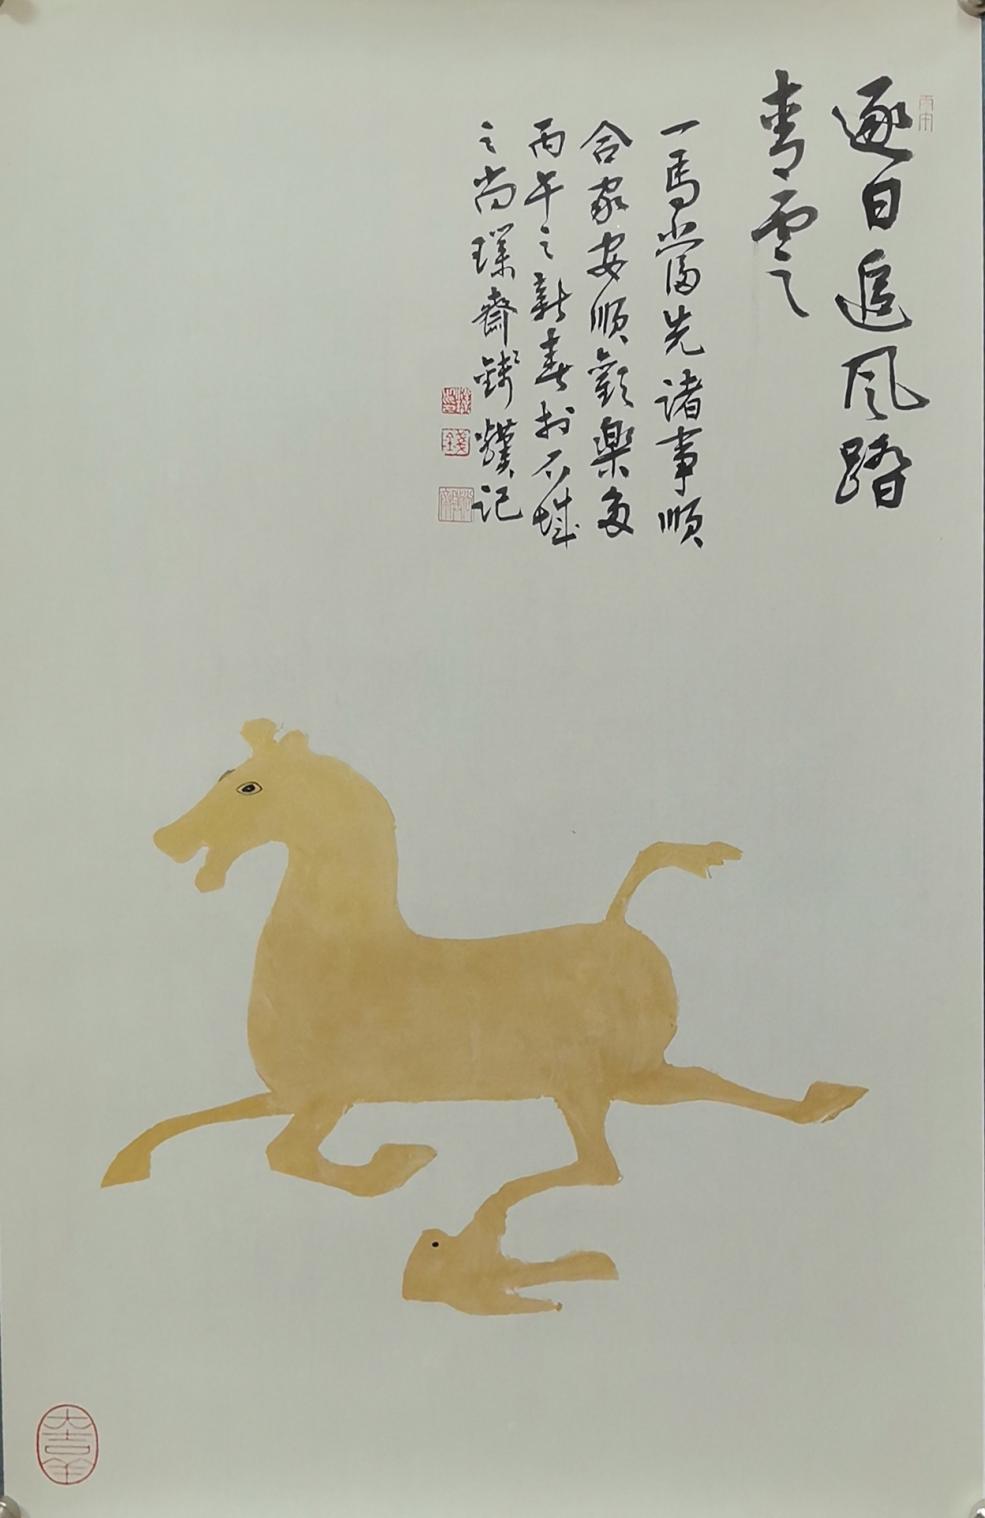 丙午
逐日追风踏
青雲
一馬當先諸事順
合家安順歡樂多
丙午之新春於石城
之尚璞齋錢記
錢
大吉羊